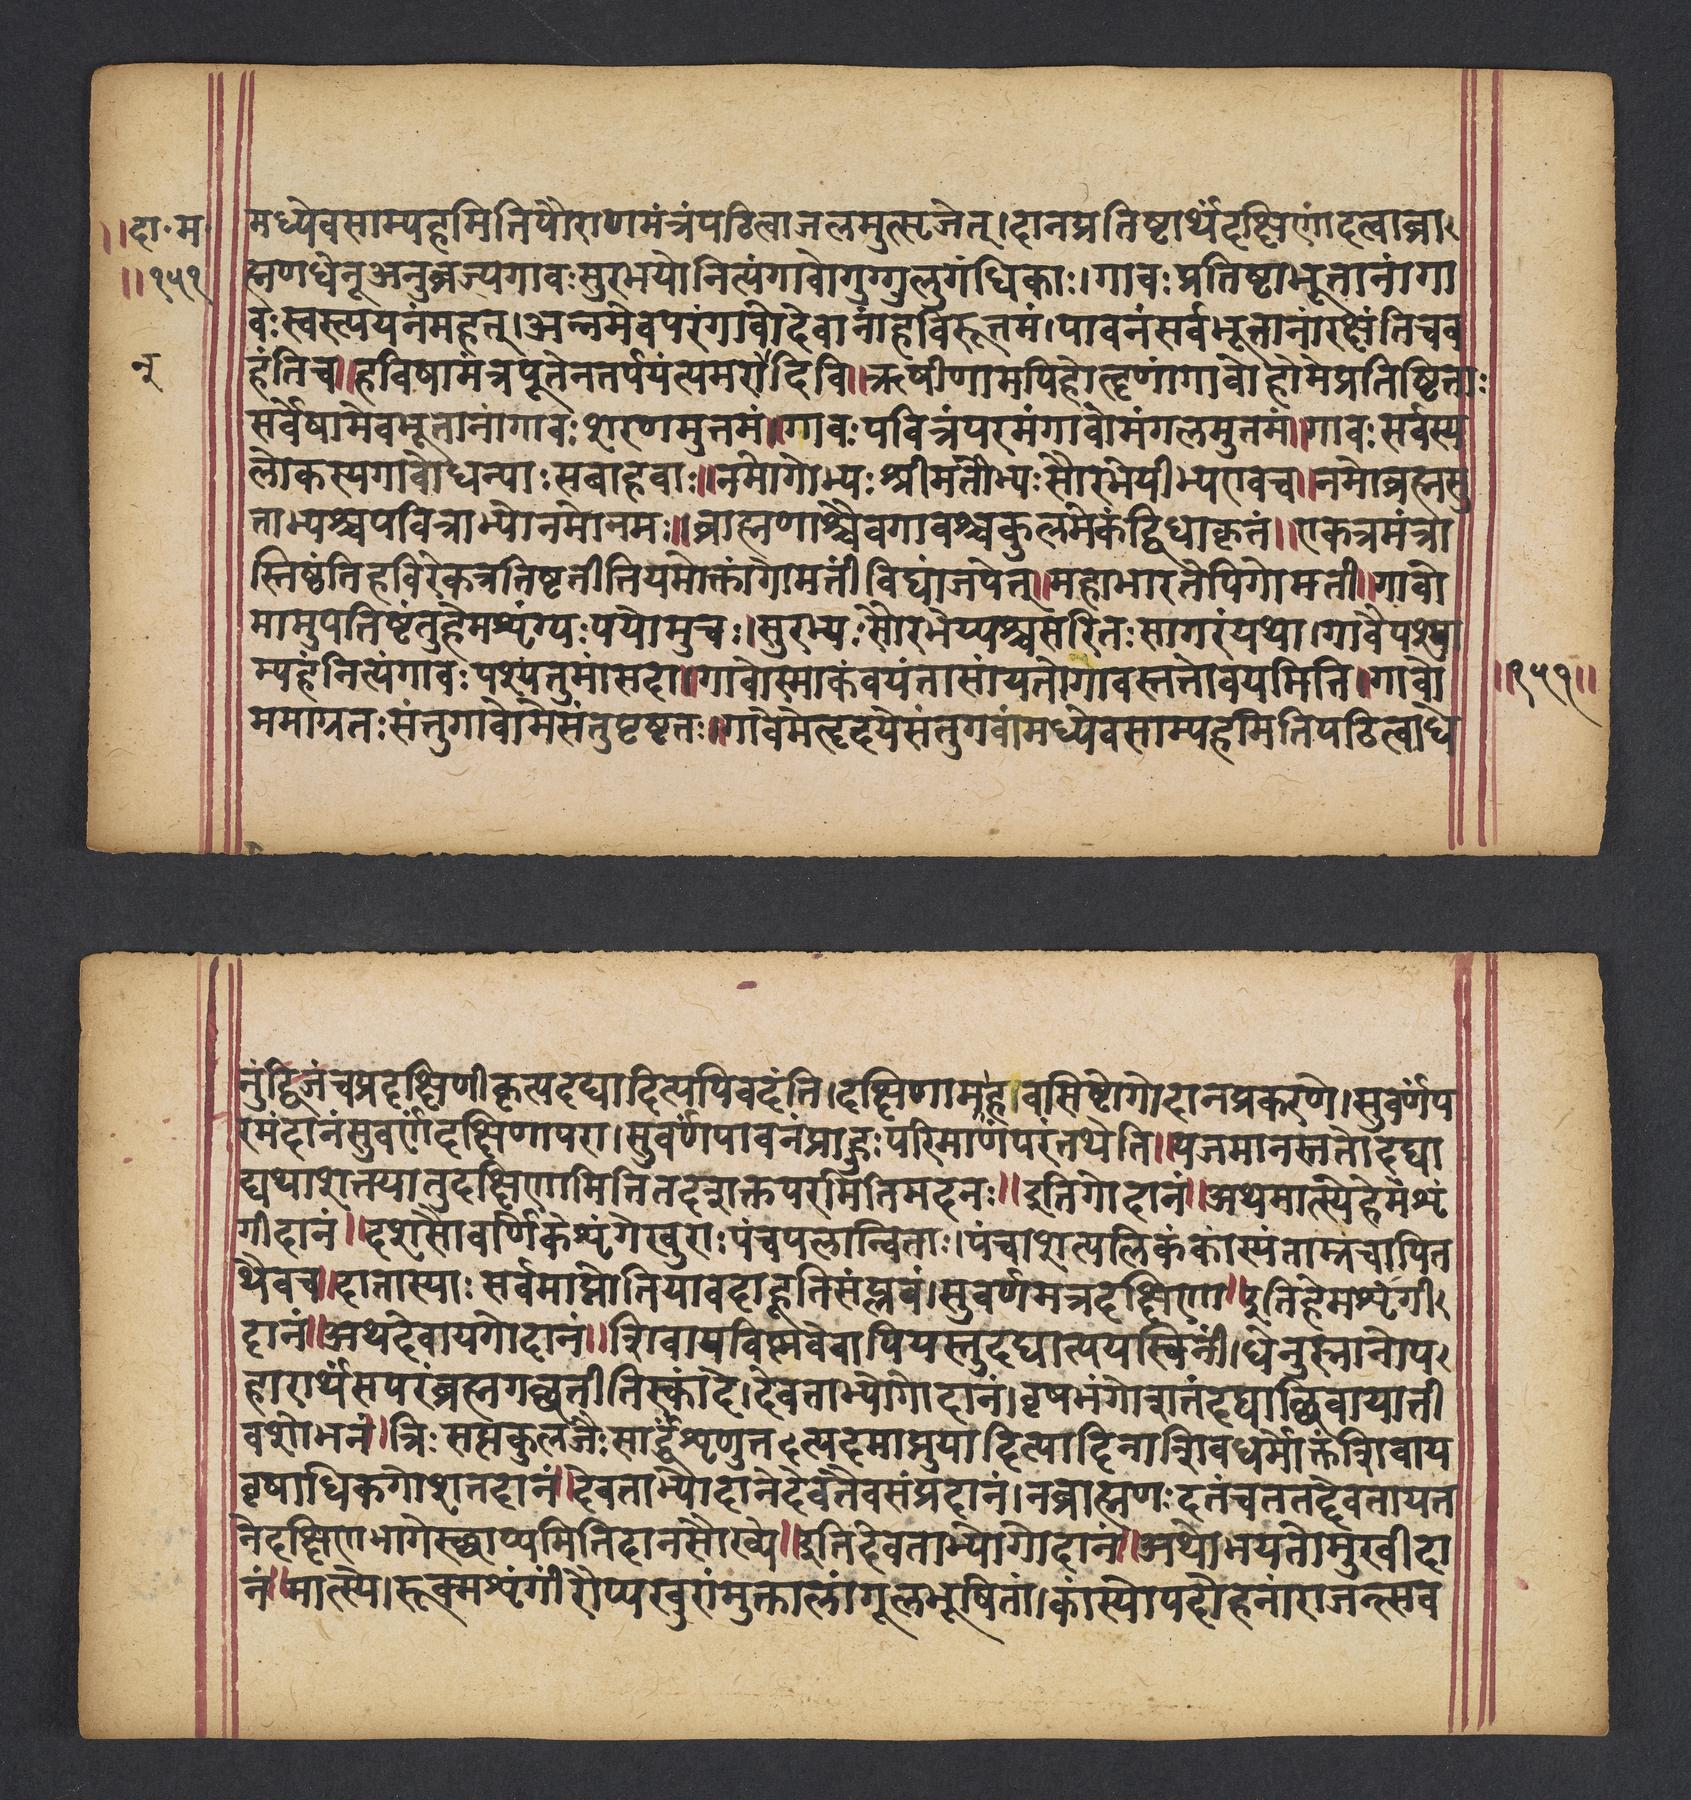 ।।दा·म
।।१५१
नु
मध्येवसाम्यहमितिपौराणमंत्रंपठित्वाजलमुत्सृजेत्।दानप्रतिष्टार्थंदक्षिणांदत्वाब्रा
ह्मणधेनूअनुव्रज्यगावःसुरभयोनित्यंगावोगुग्गुलुगंधिकाः।गावःप्रतिष्टाभूतानांगा
वःस्वस्त्ययनंमहत्।अन्नमेवपरंगावोदेवानांहविरुत्तमं।पावनंसर्वभूतानांरक्षंतिचव
हंतिच॥हविषामंत्रपूतेनतर्पयंत्यमरांदिवि॥ऋषीणामपिहोतॄणांगावोहोमेप्रतिष्ठिताः
सर्वेषामेवभूतानांगावःशरणमुत्तमं॥गावःपवित्रंपरमंगावोमंगलमुत्तमं॥गावःसर्वस्य
लोकस्यगावोधन्याःसवाहवाः॥नमोगोभ्यःश्रीमतीभ्यःसौरभेयीभ्यएवच॥नमोब्रह्मसु
ताभ्यश्चपवित्राभ्योनमोनमः॥ब्राह्मणाश्चैवगावश्चकुलमेकंद्विधाकृतं॥एकत्रमंत्रा
स्तिष्ठंतिहविरेकत्रतिष्टतीतियमोक्तांगोमतीं विद्यांजपेत्॥महाभारतेपिगोमती॥गावो
मामुपतिष्टंतुहेमशृंग्यःपयोमुचः॥सुरभ्यःसौरभेय्यश्चसरितःसागरंयथा।गावैपश्या
म्यहंनित्यंगावःपश्यंतुमांसदा॥गावोस्माकंवयंतासांयतोगावस्ततोवयमिति॥गावो
ममाग्रतःसंतुगावोमेसंतुपृष्टतः॥गावेमेत्दृदयेसंतुगवांमध्येवसाम्यहमितिपठित्वाधे
।।१५१।।
नुंद्विजंचप्रदक्षिणीकृत्यदद्यादित्यपिवदंति।दक्षिणामाहवसिष्टोगोदानप्रकरणे।सुवर्णंप
रमंदानंसुवर्णंदक्षिणापरा।सुवर्णंपावनंप्राहुःपरिमाणंपरंतथेति॥यजमानस्ततोदद्या
द्यथाशक्तयातुदक्षिणामितितदशक्तपरमितिमदनः॥इतिगोदानं॥अथमात्स्येहेमशृं
गीदानं॥दशसौवर्णिकेशृंगेखुराःपंचपलान्विताः।पंचाशत्पलिकंकांस्यंताम्रंचापित
थैवच॥दातास्याः सर्वमाप्नोतियावदाहूतिसंप्लवं।सुवर्णमत्रदक्षिणा॥इतिहेमशृंगी
दानं॥अथदेवायगोदानं॥शिवायविष्णवेवापियस्तुदद्यात्पयस्विनीं।धेनुस्नानोप
हारार्थंसपरंब्रह्मगच्छतीतिस्कांदे।देवताभ्योगोदानं।वृषभंगोशतंदद्याच्छिवायाती
वशोभनं॥त्रिःसप्तकुलजैःसार्द्धंशृणुत त्पदमाप्नुयादित्यादिनाशिवधर्मोक्तंशिवाय
वृषाधिकगोशतदानं॥देवताभ्योदानेदेवतैवसंप्रदानं।नब्राह्मणःदतंचततद्देवतायत
नेदक्षिणभागेस्छाप्यमितिदानसौख्ये॥इतिदेवताभ्योगोदानं॥अथोभयतोमुखीदा
नं॥मात्स्ये।रूक्मशृंगीं रौप्यखुरांमुक्तालांगूलभूषितां।कांस्योपदोहनांराजन्सव